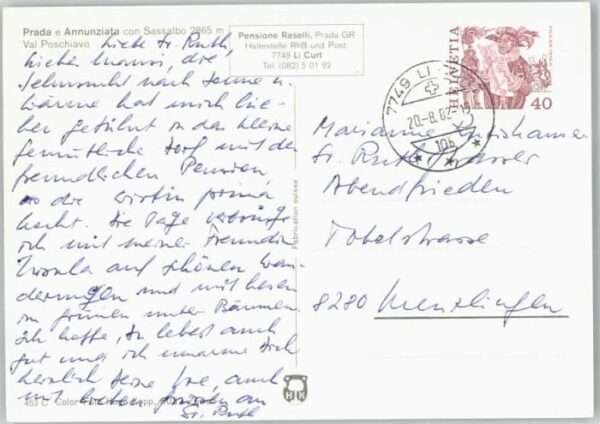 Prada e Annunziata con Sassalbo 2865 m
Val Poschiavo
Pensione Raselli, Prada GR
Haltestelle RhB und Post:
7749 Li Curt
Tel. (082) 5 01 92
Liebe Sr. Ruth,
die
Sehnsucht nach Sonne u.
Wärme hat mich hie-
her geführt in das kleine
gemütliche Dorf mit der
freundlichen Pension,
wo die Wirtin prima
kocht. Die Tage verbringe
ich mit meiner Freundin
Ursula auf schönen Wan-
derungen und mit lesen
im grünen unter Bäumen.
Ich hoffe, Du lebst auch
gut und ich umarme Dich
herzlich Deine auch
mit lieben Grüssen an
Sr. Ruth
HELVETIA
40
7749 LI
20.-8.82
Marianne
Sr. Ruth
Abendfrieden
Tobelstrasse
8280 Kreuzlingen
Fabrication suisse
HK